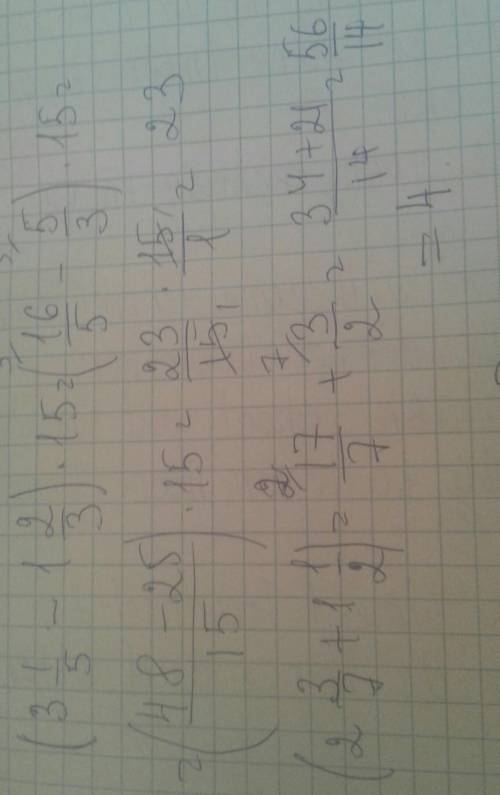 (3 1/5 - 1 2/3) · 15 = (16/5 - 5/3) · 15 =
= (48 - 25/15) · 15 = 23/15 · 15/1 = 23
(2 3/7 + 1 1/2) = 17/7 + 3/2 = 34 + 21/14 = 56/14
= 4